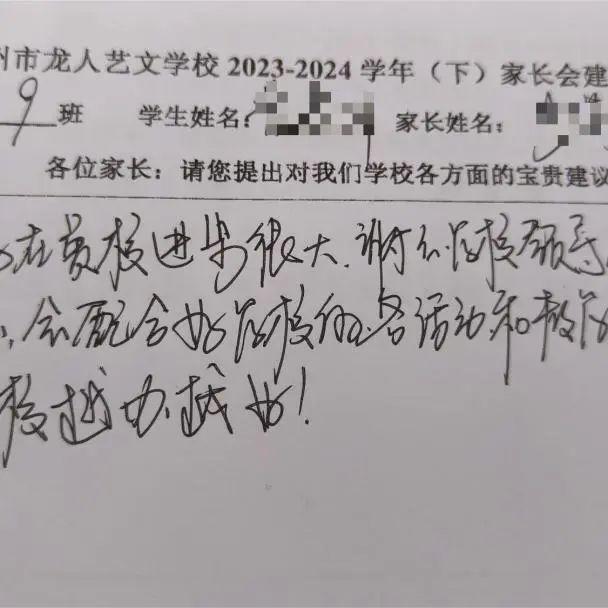 州市龙人艺文学校 2023-2024 学年（下）家长会建
9 班 学生姓名： 家长姓名：
各位家长：请您提出对我们学校各方面的宝贵建议
在贵校进步很大，谢谢学校领导
会配合好学校的各活动和教
校越办越好！